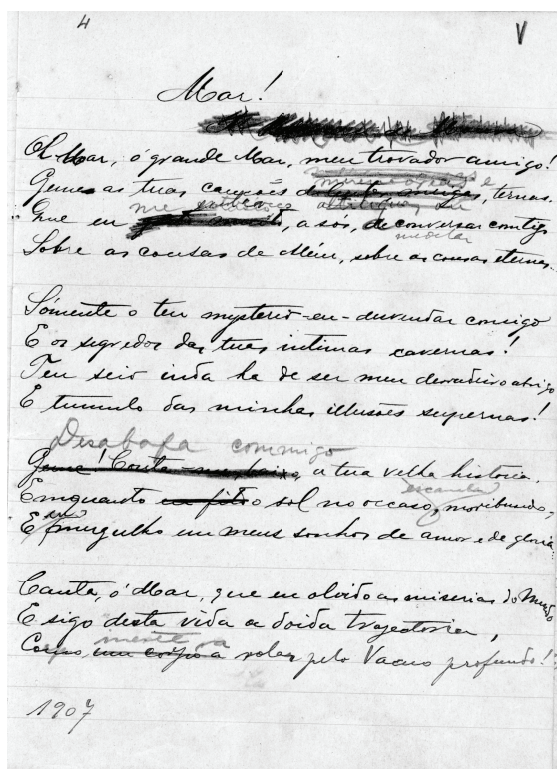 4
V
Mar!
Ó Mar, ó grande Mar, meu trovador amigo!
Gemes as tuas canções e ternas.
Que eu me, a sós, de conversar comtigo
meditar
Sobre as cousas de Além, sobre as cousas eternas.
Sómente o teu mysterio eu desvendar consigo
E os segredos das tuas intimas cavernas!
Teu seio inda ha de ser meu derradeiro abrigo
E tumulo das minhas illusões supernas!
Desabafa commigo
Geme! Conta-me, baixo, a tua velha historia.
Emquanto eu fito o sol no occaso, moribundo,
E mergulho em meus sonhos de amor e de gloria.
Canta, ó Mar, que eu olvido as miserias do Mundo
E sigo desta vida a doida trajectoria,
mente va
Corpo, um corpo a rolar pelo Vacuo profundo!
1907